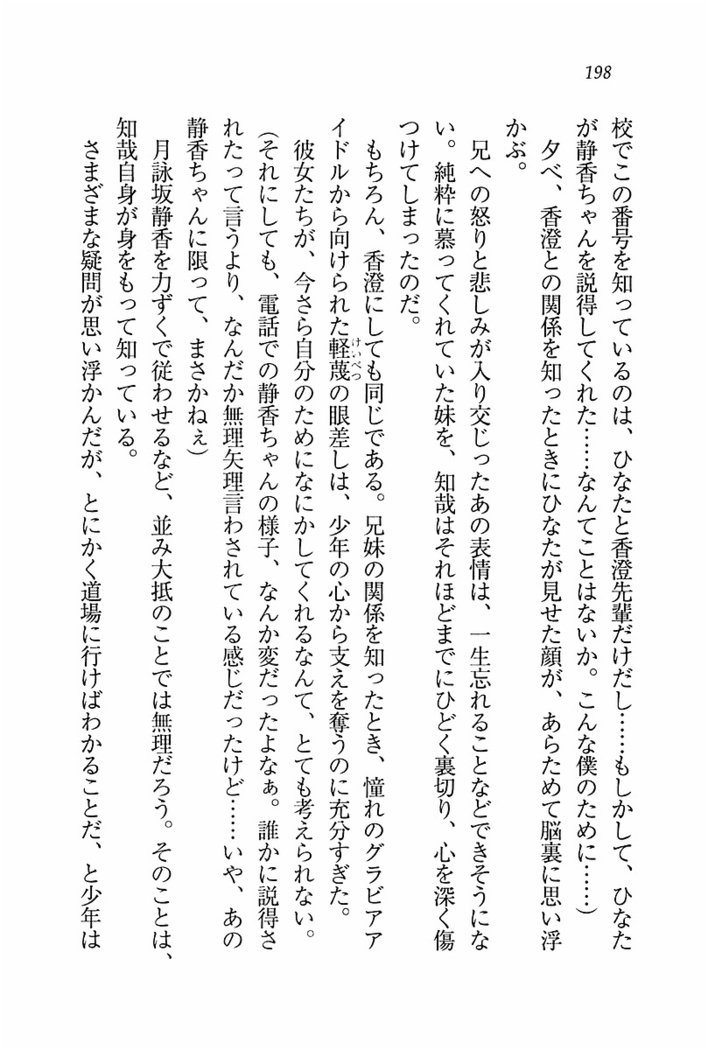 198
校でこの番号を知っているのは、ひなたと香澄先輩だけだし……もしかして、ひなた
が静香ちゃんを説得してくれた……なんてことはないか。こんな僕のために……)
　夕べ、香澄との関係を知ったときにひなたが見せた顔が、あらためて脳裏に思い浮
かぶ。
　兄への怒りと悲しみが入り交じったあの表情は、一生忘れることなどできそうにな
い。純粋に慕ってくれていた妹を、知哉はそれほどまでにひどく裏切り、心を深く傷
つけてしまったのだ。
　もちろん、香澄にしても同じである。兄妹の関係を知ったとき、憧れのグラビアア
イドルから向けられた軽蔑の眼差しは、少年の心から支えを奪うのに充分すぎた。
けいべつ
　彼女たちが、今さら自分のためになにかしてくれるなんて、とても考えられない。
(それにしても、電話での静香ちゃんの様子、なんか変だったよなぁ。誰かに説得さ
れたって言うより、なんだか無理矢理言わされている感じだったけど……いや、あの
静香ちゃんに限って、まさかねぇ)
　月詠坂静香を力ずくで従わせるなど、並み大抵のことでは無理だろう。そのことは、
知哉自身が身をもって知っている。
　さまざまな疑問が思い浮かんだが、とにかく道場に行けばわかることだ、と少年は